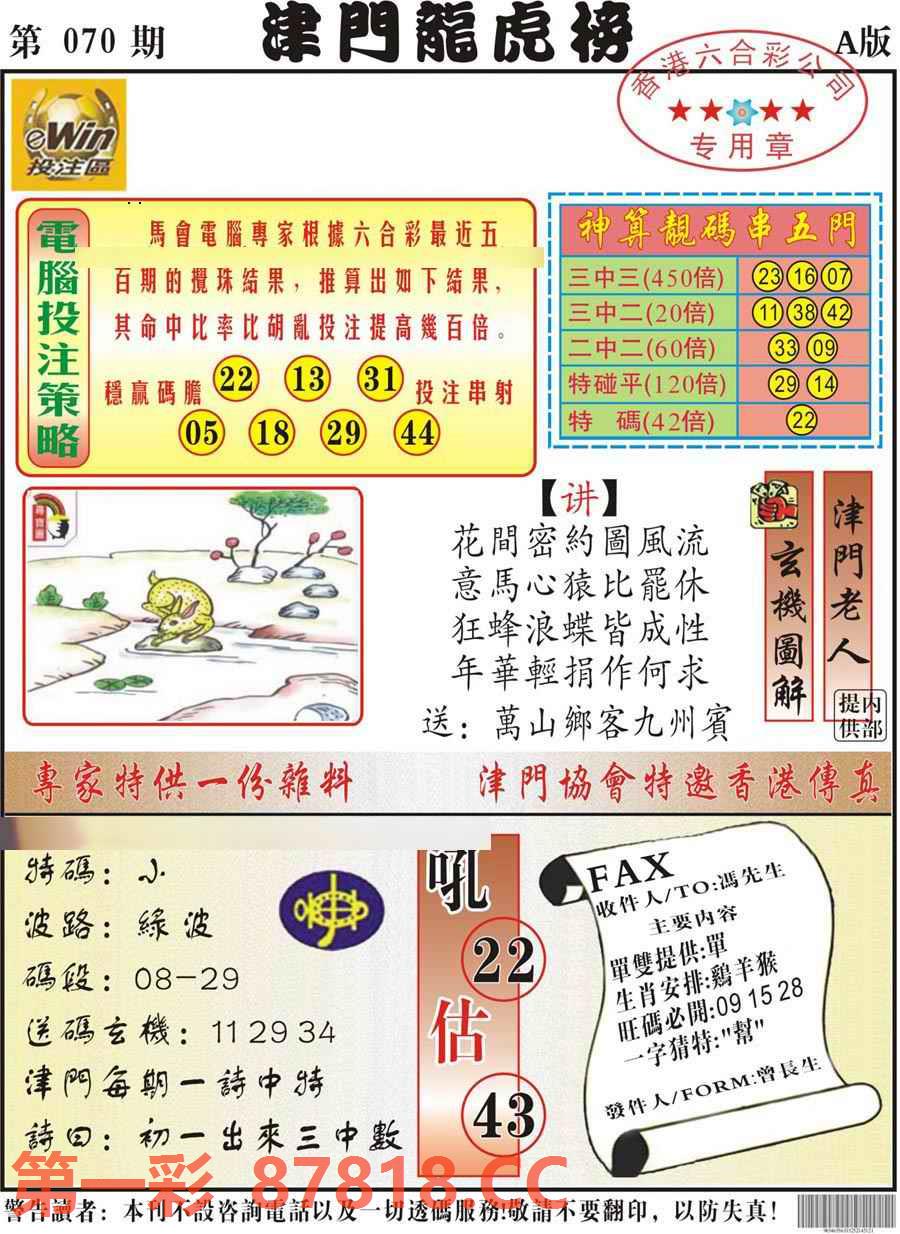 第 070 期
津門龍虎榜
A版
香港六合彩公司
专用章
eWin
投注區
電腦投注策略
馬會電腦專家根據六合彩最近五
百期的攪珠結果，推算出如下結果，
其命中比率比胡亂投注提高幾百倍。
穩贏碼膽 22 13 31 投注串射
05 18 29 44
神算靚碼串五門
三中三(450倍) 23 16 07
三中二(20倍) 11 38 42
二中二(60倍) 33 09
特碰平(120倍) 29 14
特 碼(42倍) 22
尋寶圖
【讲】
花間密約圖風流
意馬心猿比罷休
狂蜂浪蝶皆成性
年華輕捐作何求
送：萬山鄉客九州賓
玄機圖解
津門老人
内部提供
專家特供一份雜料
津門協會特邀香港傳真
特碼：小
波路：綠波
碼段：08-29
送碼玄機：11 29 34
津門每期一詩中特
詩曰：初一出來三中數
吼
22
估
43
FAX
收件人/TO:馮先生
主要内容
單雙提供:單
生肖安排:鷄羊猴
旺碼必開:09 15 28
一字猜特:"幫"
發件人/FORM:曾長生
第一彩 87818.CC
警告讀者：本刊不設咨詢電話以及一切透碼服務!敬請不要翻印，以防失真!